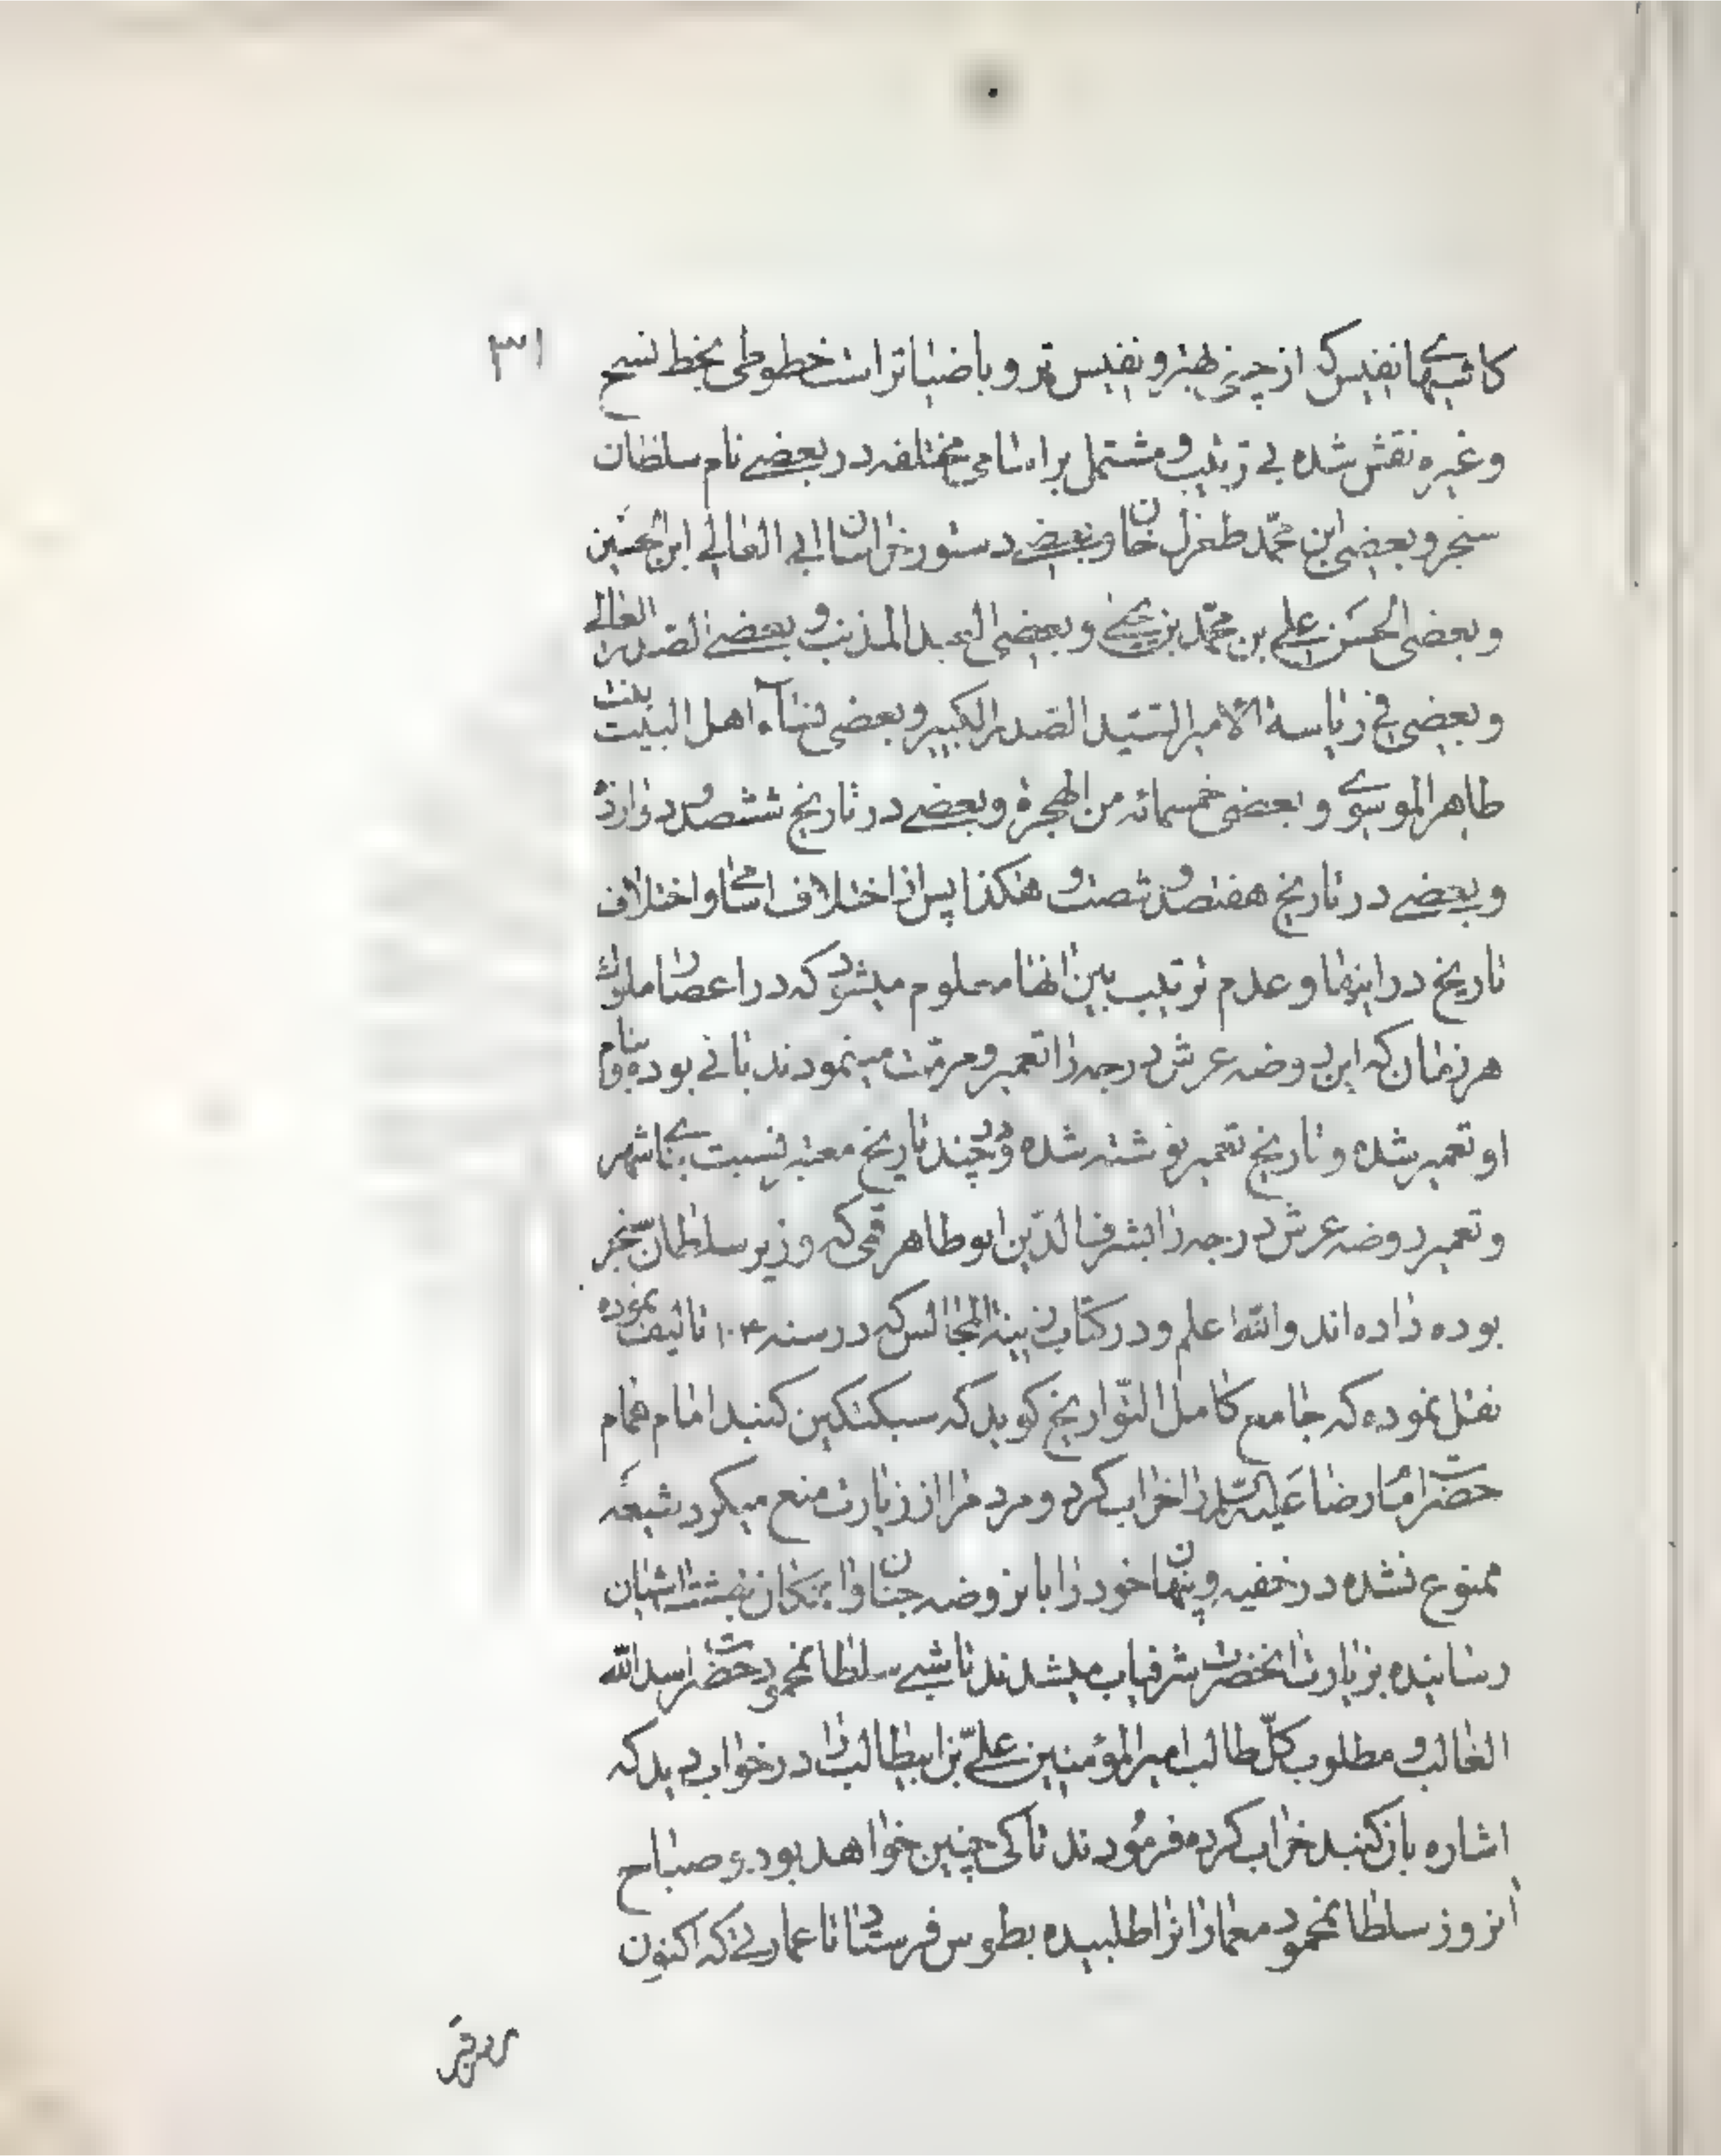 ۳۱
کاشیهای نفیس که از چینی بهتر و نفیس تر و با ضیاتر است خطوطی بخط نسخ
و غیره نقش شده بی ترتیب و مشتمل بر اسامی مختلفه در بعضے نام سلطان
سنجر و بعضی ابن محمّد طغرل خان و بعضے دستور خراسان ابی المعالے ابن الحسین
و بعضی الحسن علی بن محمّد بن یحیی و بعضی العبد المذنب و بعضے الصدر العالے
و بعضی فی ریاسة الامیر السیّد الصدر الکبیر و بعضی نساء اهل البیت بنت
طاهر الموسوی و بعضی خمسمائه من الهجرة و بعضے در تاریخ ششصد و دوازده
و بعضے در تاریخ هفتصد و شصت و هکذا پس از اختلاف اسامی و اختلاف
تاریخ در اینها و عدم ترتیب بین انها معلوم میشود که در اعصار ملوک
هر زمان که این روضه عرش درجه را تعمیر و مرمّت مینمودند بانی بوده و بنام
او تعمیر شده و تاریخ تعمیر نوشته شده و در چند تاریخ معتبر نسبت بنای شهر
و تعمیر روضه عرش درجه را بشرف الدّین ابوطاهر قمی که وزیر سلطان سنجر
بوده داده اند و الله اعلم و در کتاب زینة المجالس که در سنه ۱۰۰۴ تالیف نموده
نقل نموده که جامع کامل التّواریخ کوید که سبکتکین کنبد امام همام
حضرت امام رضا علیه السّلام را خراب کرد و مردم را از زیارت منع میکرد شیعه
ممنوع نشده در خفیه و پنهان خود را بان روضه جنان
رسانیده بزیارت انحضرت شرفیاب میشدند تا شبی سلطان محمود حضرت اسد الله
الغالب و مطلوب کلّ طالب امیر المؤمنین علیّ بن ابیطالب را در خواب دید که
اشاره بان کنبد خراب کرده فرمودند تا کی چنین خواهد بود و صباح
انروز سلطان محمود معماران را طلبیده بطوس فرستاد تا عمارتی که اکنون